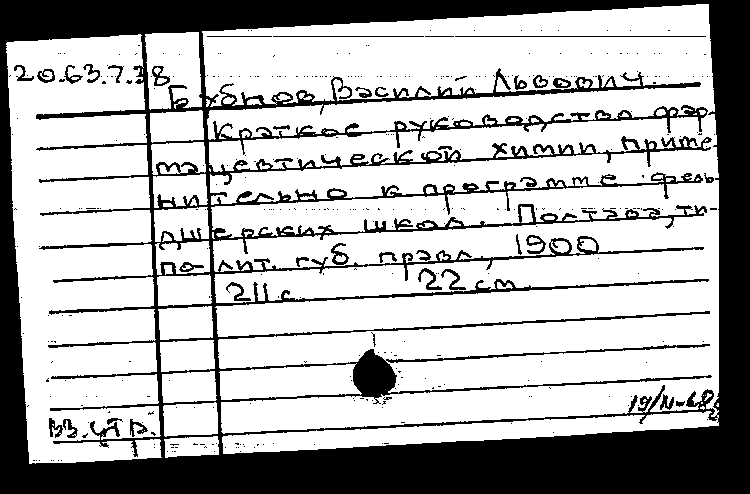 20.63.7.38
Бубнов, Василий Львович.
Краткое руководство фар-
мацевтической химии, приме-
нительно к программе фель-
дшерских школ. Полтава, ти-
по-лит. губ. правл., 1900
211 с. 22 см